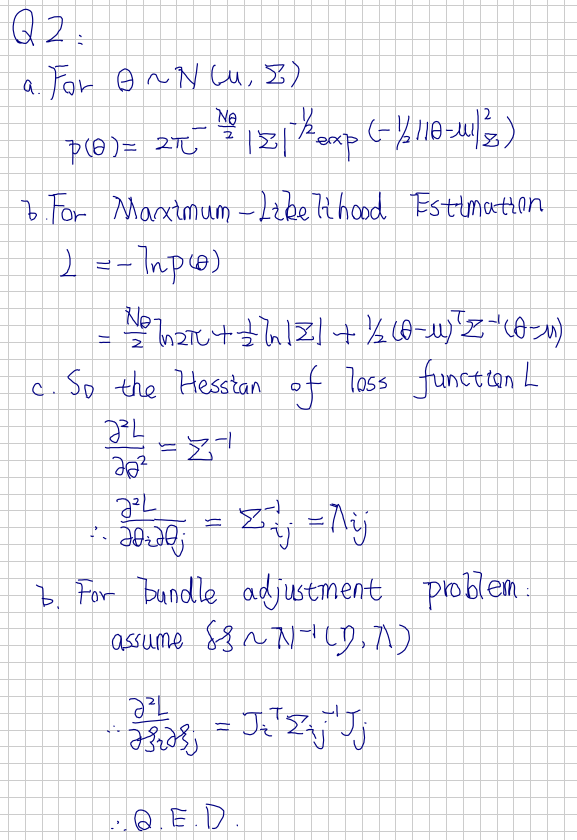 Q2:
a. For θ ~ N(μ, Σ)
p(θ) = 2π^{-Nθ/2} |Σ|^{-1/2} exp(-1/2 ||θ-μ||²_Σ)
b. For Maximum-Likelihood Estimation
L = -ln p(θ)
= Nθ/2 ln2π + 1/2 ln|Σ| + 1/2 (θ-μ)^T Σ^{-1} (θ-μ)
c. So the Hessian of loss function L
∂²L/∂θ² = Σ^{-1}
∴ ∂²L/∂θi∂θj = Σ^{-1}_{ij} = Λij
b. For bundle adjustment problem:
assume δξ ~ N^{-1}(η, Λ)
∴ ∂²L/∂ξi∂ξj = Ji^T Σ_{ij}^{-1} Jj
∴ Q.E.D.